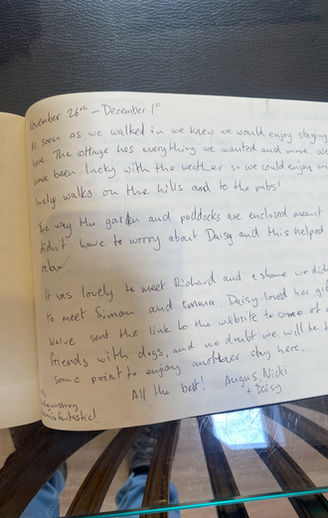 November 26th – December 1st
As soon as we walked in we knew we would enjoy staying
here. The cottage has everything we wanted and more. We
have been lucky with the weather so we could enjoy
lovely walks on the hills and to the pubs!
The way the garden and paddocks are enclosed meant
didn't have to worry about Daisy and this helped
relax.
It was lovely to meet Richard and a shame we did
to meet Simon and Emma. Daisy loved her
We've sent the link to the website to some of
friends with dogs, and no doubt we will be
some point to enjoy another stay here.
All the best! Angus, Nicki
+ Daisy
is fantastic!